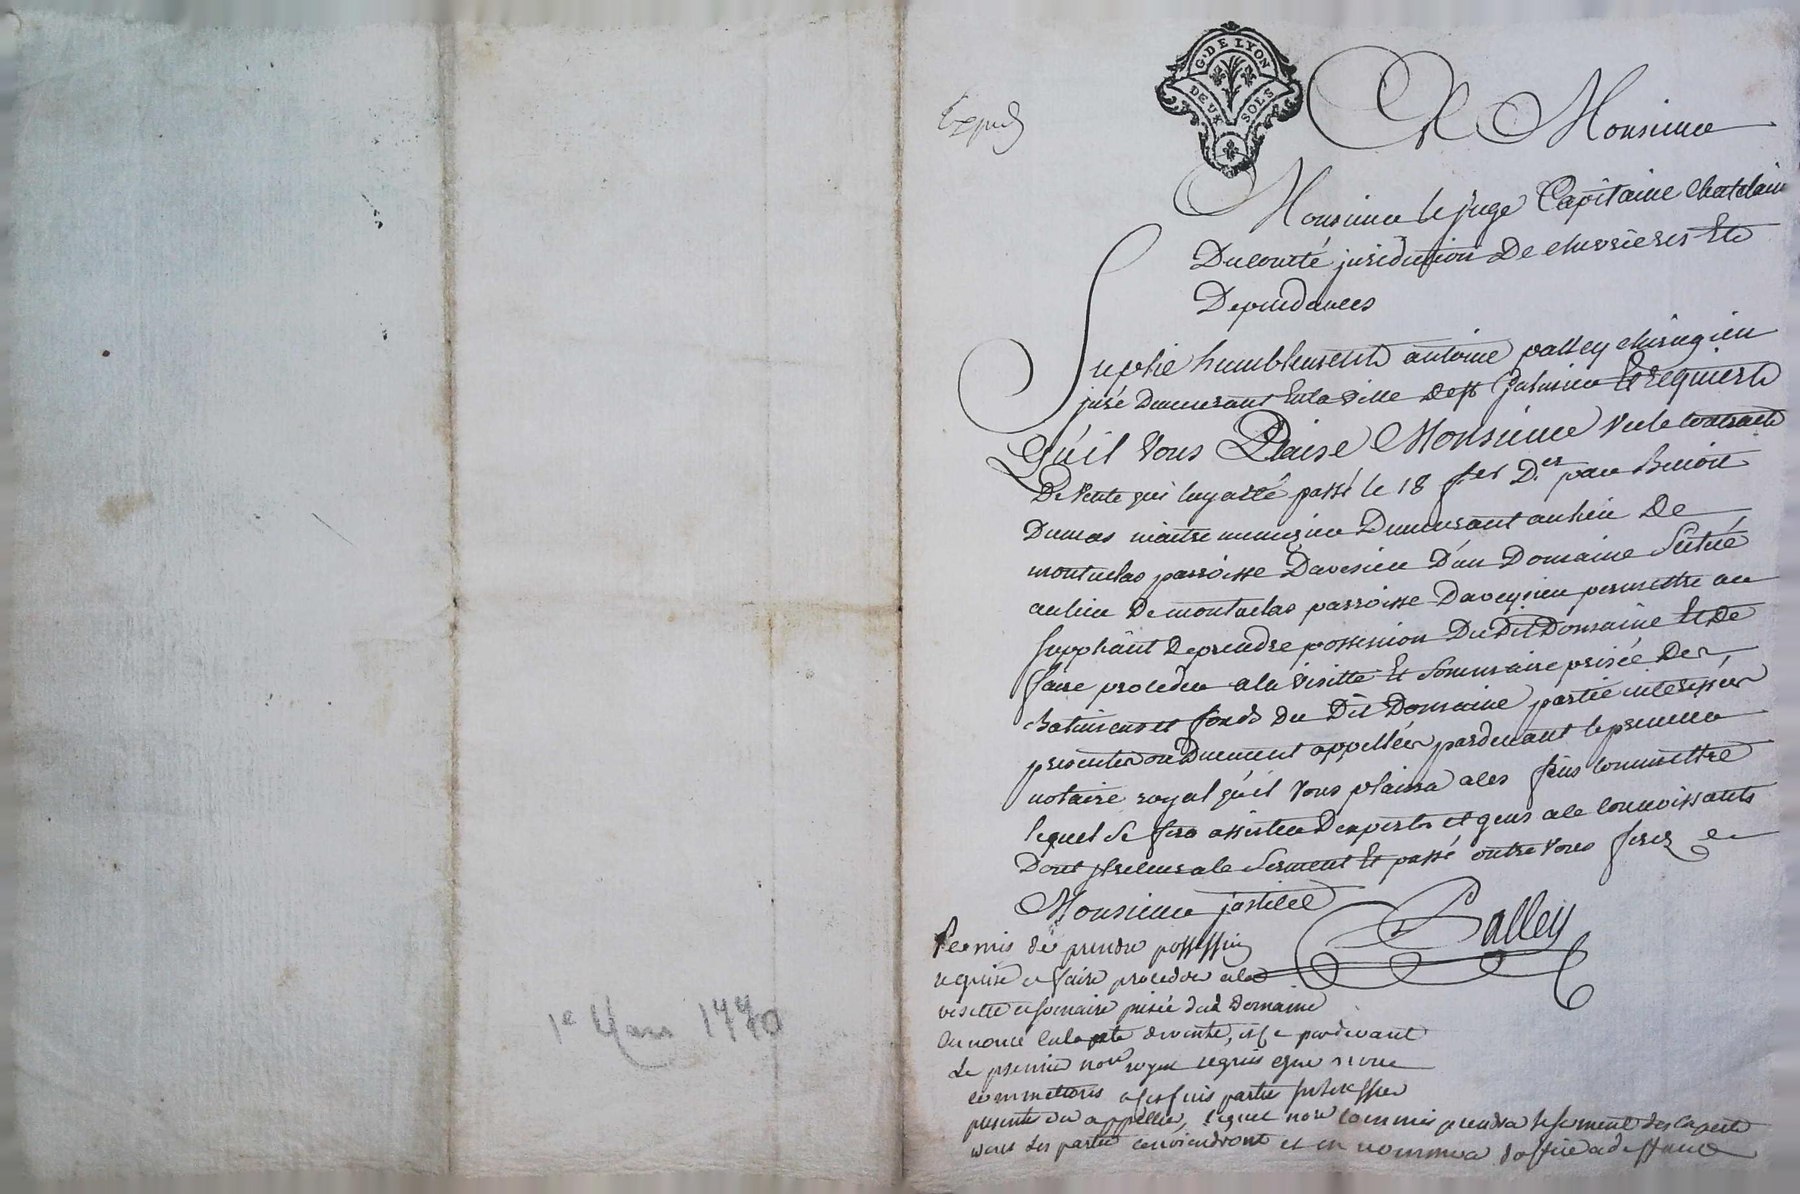 G. DE LYON
DEUX SOLS
A Monsieur
Monsieur le juge Capitaine Chatelain
Du comté jurisdiction De chevrieres Et
Dependances
Suplie humblement antoine palley chirugien
juré Demeurant En la ville De st Galmier Et requiert
Qu'il Vous Plaise Monsieur Vu le contract
De Vente qui luy a été passé le 18 fer Der par Benoit
Dumas maitre Demeurant au lieu De
montuclas parroisse Davesieu D'un Domaine Scitué
au lieu De montuclas parroisse Daveysieu permettre au
suppliant De prendre possession Du Dit Domaine Et De
faire proceder a la Visitte Et Sommaire prisée Des
Batimens et fonds du Dit Domaine partie interessées
presentes ou Duement appellées pardevant le premier
notaire royal qu'il Vous plaira a ces fins commettre
lequel Se fera assister D'experts et gens a ce connoissants
Dont prelevera le Serment Et passé outre Vous ferez
Monsieur justice
Palley
Permis de prendre possession
requise et faire proceder a la
visitte et somaire prisée dud Domaine
enoncé en la de vente, et ce pardevant
Le premier nore royal requis que nous
commettons a ces fins partie interessées
presente ou appellée, lequel nore commis prendra le serment des experts
dont les parties conviendront et en nommera d'office a deffaut
1e Mars 1770